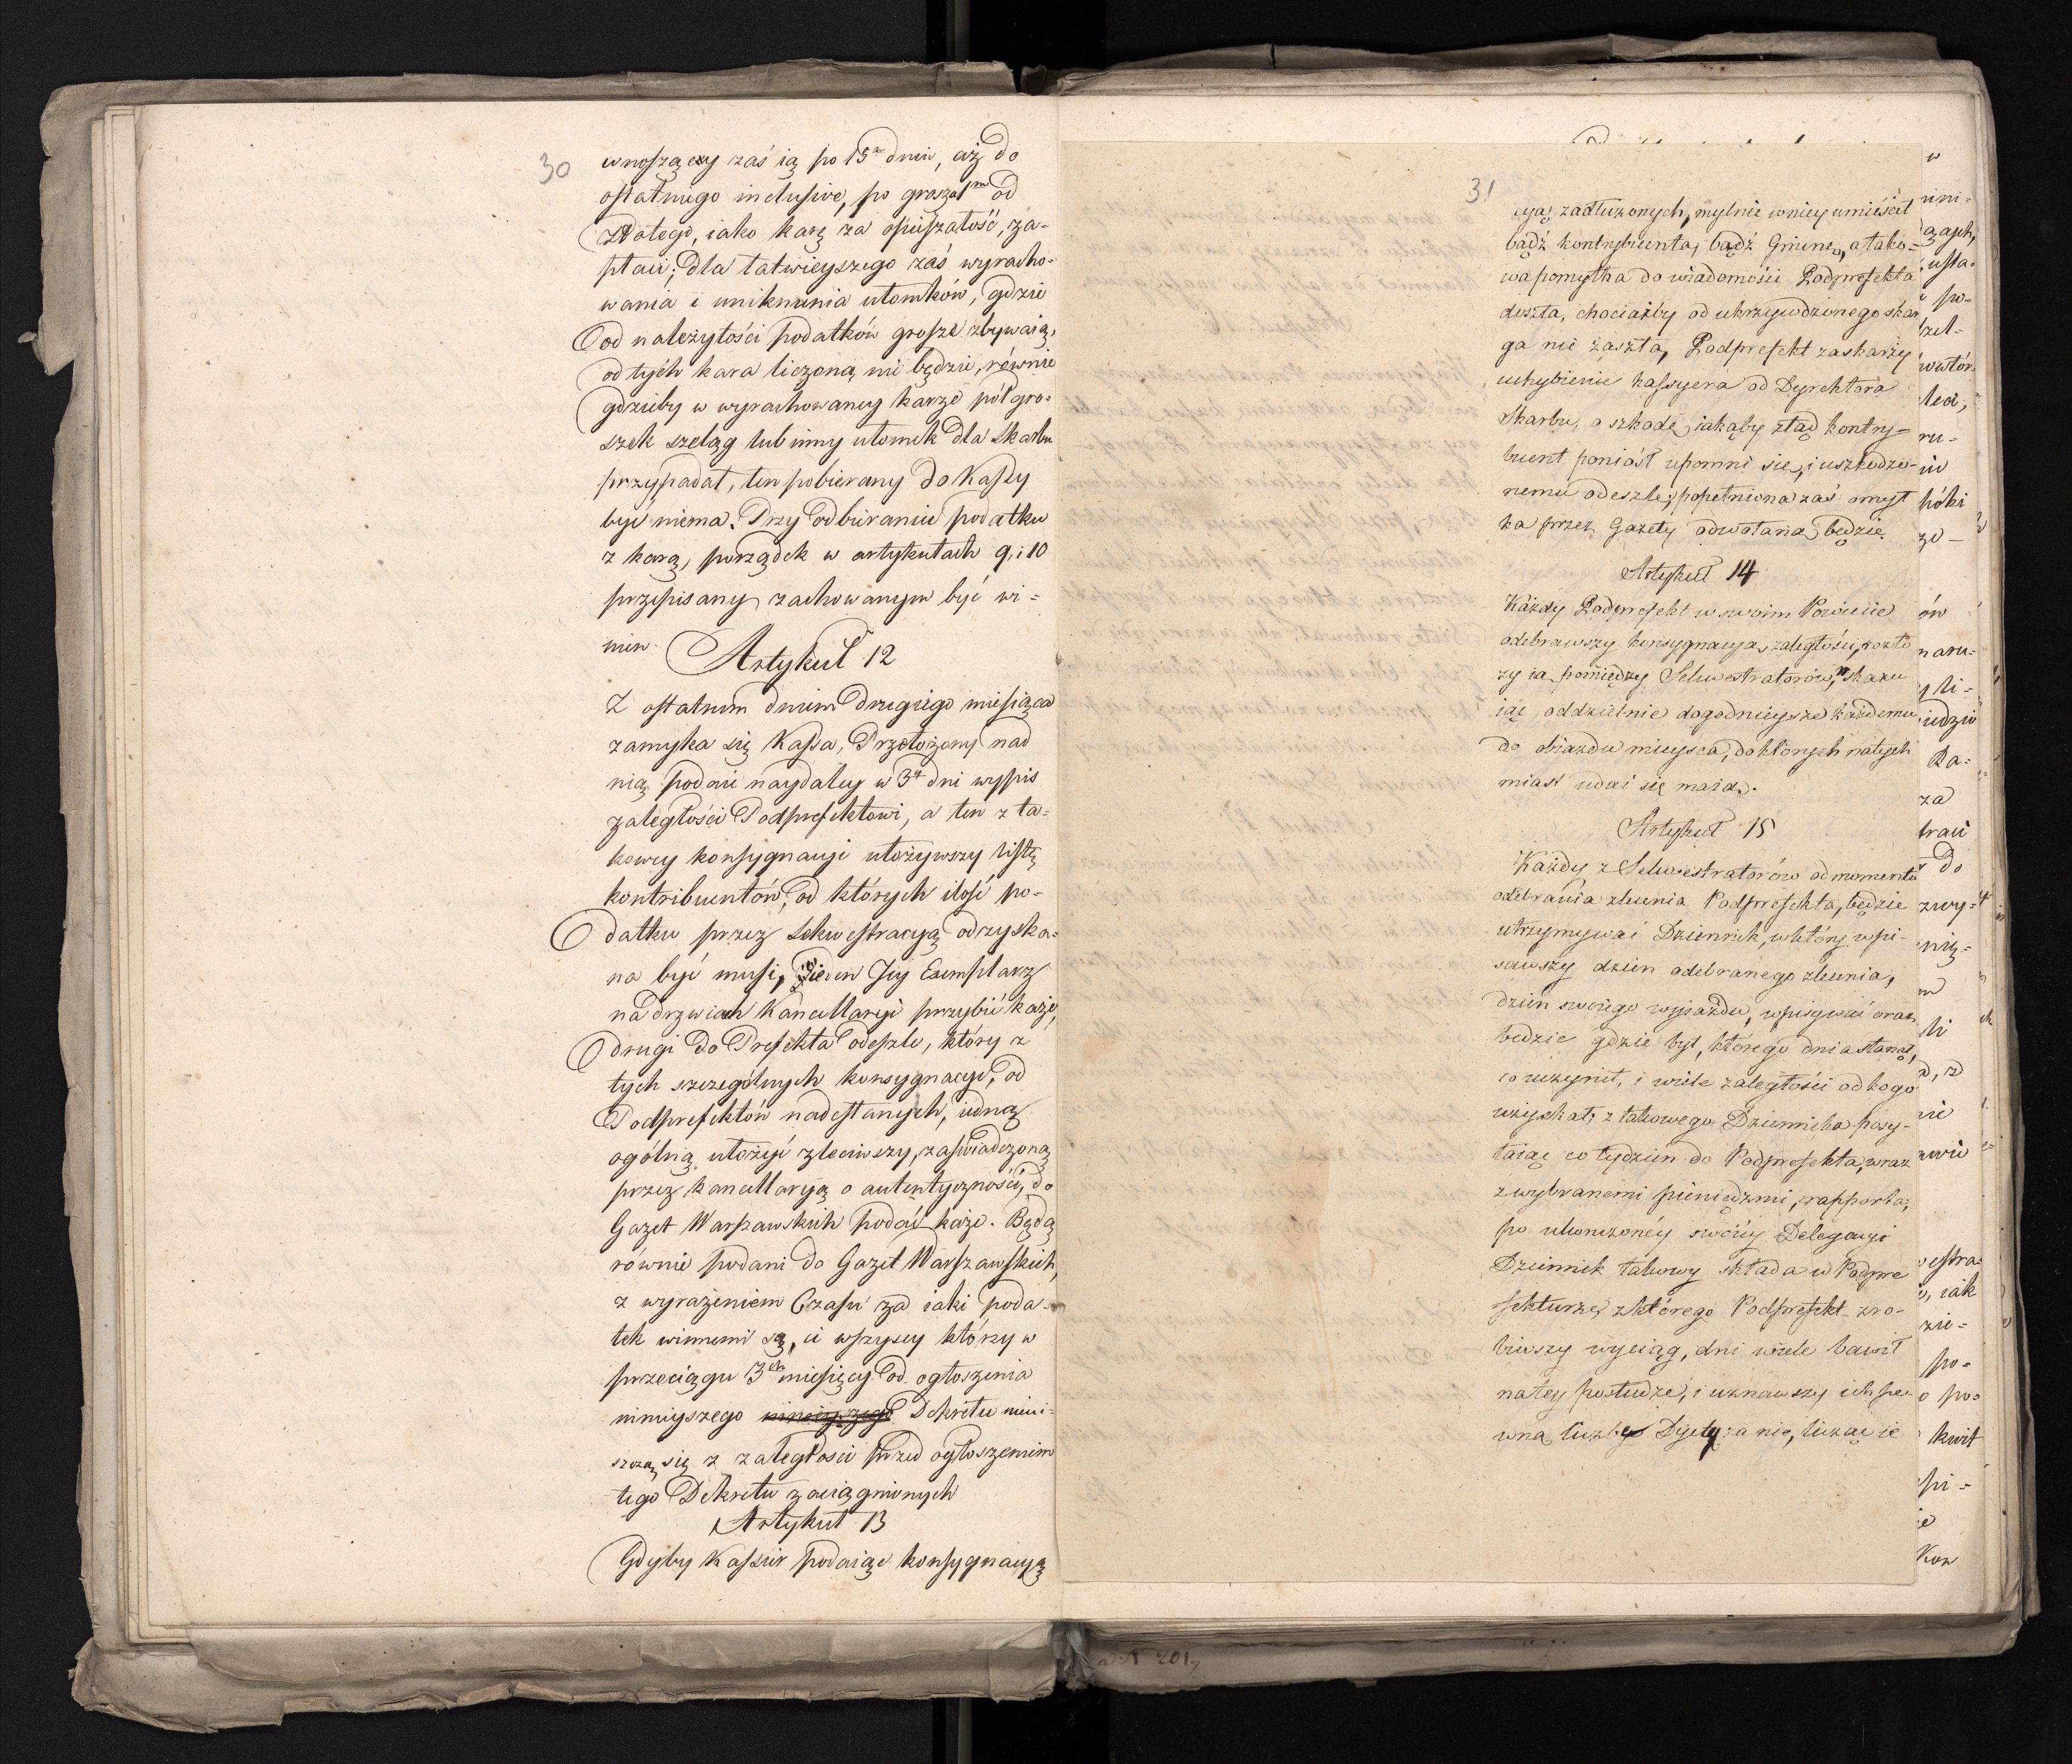 30
wnoszący zaś ią po 15m dniu, aż do
ostatniego inclusive, po groszu 1m od
Złotego, iako karę za opieszałość, za-
płaci; dla łatwieyszego zaś wyracho-
wania i uniknienia ułomków, gdzie
od należytości podatków grosze zbywaią,
od tych kara liczoną nie będzie, równie
gdzieby w wyrachowaney karze pół gro-
szek szeląg lub inny ułomek dla Skarbu
przypadał, ten pobierany do Kassy
być niema. Przy odbieraniu podatku
z karą, porządek w artykułach 9, i 10
przepisany zachowanym być wi=
nien
Artykuł 12
Z ostatnim dniem drugiego miesiąca
zamyka się Kassa, Przełożony nad
nią poda naydaley w 3ch dni wypis
zaległości Podprefektowi, a ten z ta-
kowey konsygnacyi ułożywszy listę
kontribuentów, od których ilość po-
datku przez Sekwestracyą odzyska-
na być musi, ieden Jey Exemplarz
na drzwiach Kancellaryi przybić każe,
drugi do Prefekta odeszle, który z
tych szczególnych konsygnacyi, od
Podprefektów nadesłanych, iedną
ogólną ułożyć zleciwszy, zaświadczoną
przez Kancellaryą o autentyczności, do
Gazet Warszawskich podać każe. Będą
równie podani do Gazet Warszawskich,
z wyrażeniem Czasu za iaki poda-
tek winnemi są, ci wszyscy którzy w
przeciągu 3ch miesięcy od ogłoszenia
ninieyszego ninieyszego Dekretu nieui-
szczą się z zaległości przed ogłoszeniem
tego Dekretu zaciągnionych
Artykuł 13
Gdyby Kassier podaiąc konsygnacyą
31
cyą zadłużonych, mylnie w niey umieścił
bądź kontrybuenta, bądź Gminę, a tako-
wa pomyłka do wiadomości Podprefekta
doszła, chociażby od ukrzywdzonego skar
ga nie zaszła, Podprefekt zaskarży
uchybienie kassyera od Dyrektora
Skarbu, o szkodę, iakąby ztąd kontry-
buent poniósł upomni się, i uszkodzo-
nemu odeszle; popełniona zaś omył
ka przez Gazety odwołana będzie.
Artykuł 14
Każdy Podprefekt w swoim Powiecie
odebrawszy konsygnacyą zaległości, rozło
ży ią pomiędzy Sekwestratorów, wskazu
iąc oddzielnie dogodnieysze każdemu
do obiazdu mieysca, do których natych
miast udać się maią.
Artykuł 15
Każdy z Sekwestratorów od momentu
odebrania zlecenia Podprefekta, będzie
utrzymywać Dziennik, w który wpi-
sawszy dzień odebranego zlecenia,
dzień swoiego wyjazdu, wpisywać oraz
będzie gdzie był, którego dnia stanął,
co uczynił, i wiele zaległości od kogo
uzyskał, z takowego Dziennika posy-
łaiąc co tydzień do Podprefekta, wraz
z wybranemi pieniędzmi, rapporta,
po ukończoney swoiey Delegacyi
Dziennik takowy składa w Podpre
fekturze, z którego Podprefekt zro-
biwszy wyciąg, dni wiele bawił
na tey posłudze, i uznawszy ich pe-
wną liczbę Dyety za nie, licząc ie